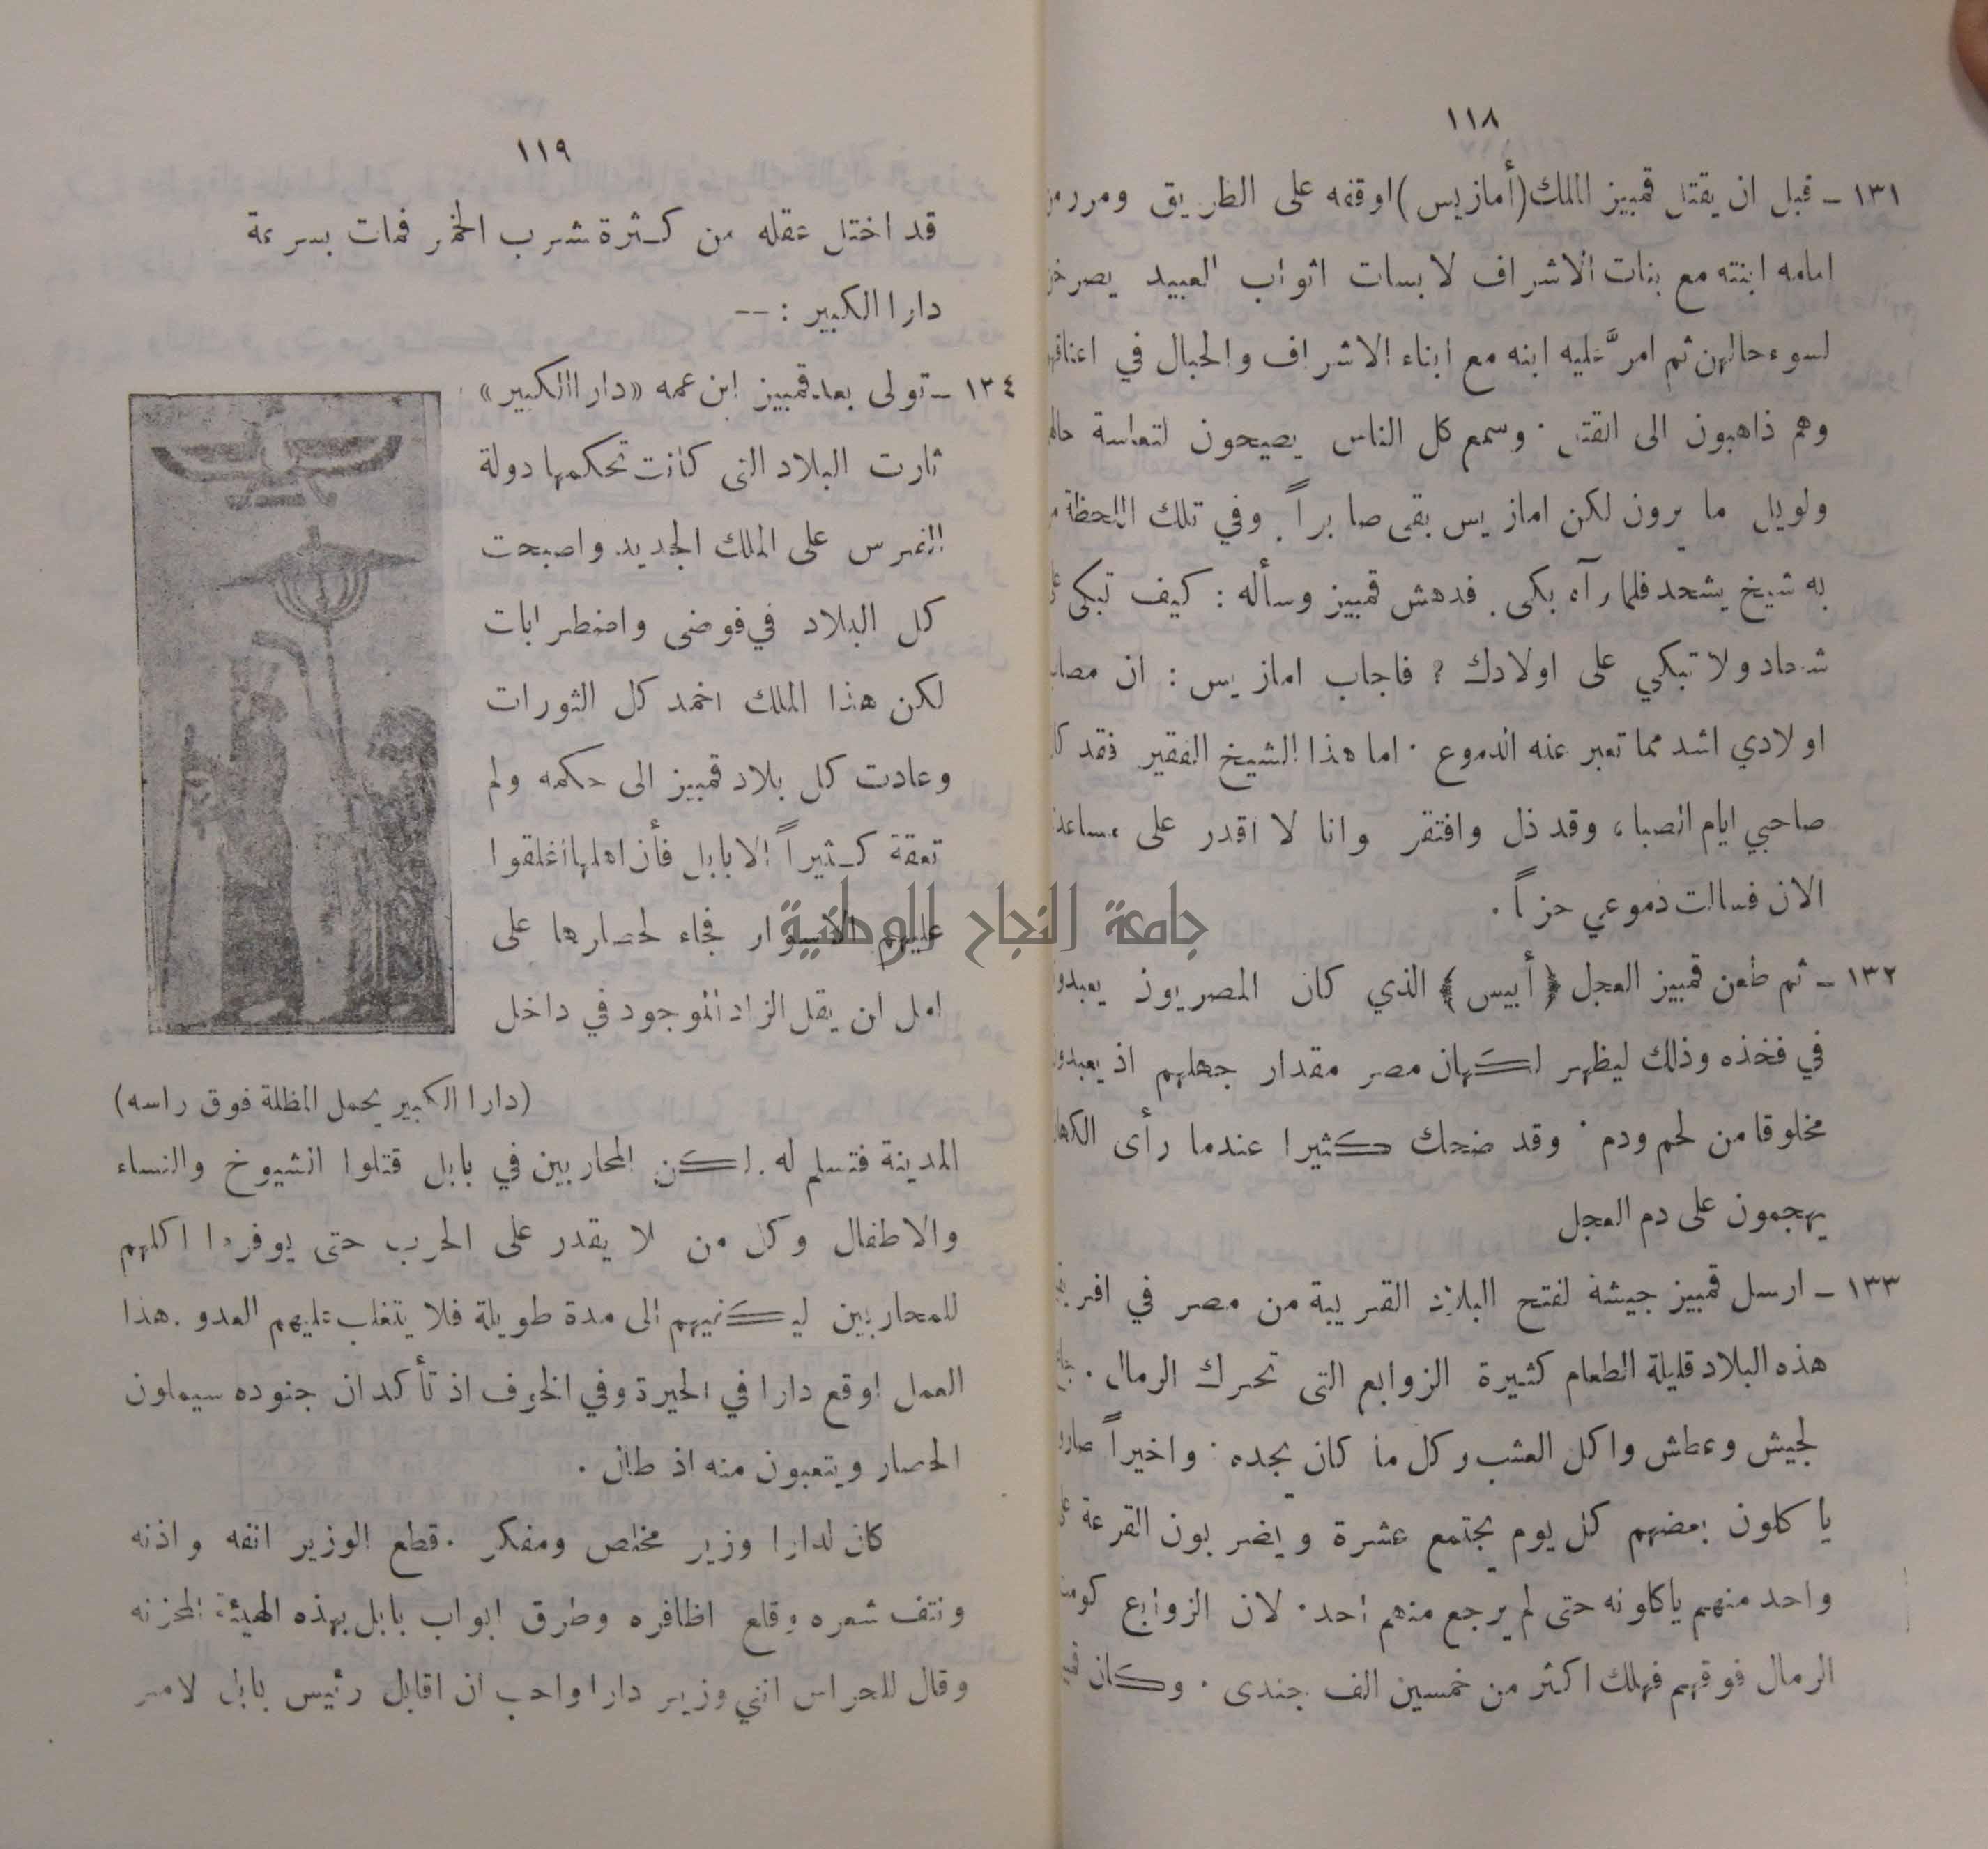 ١١٨
١٣١ – قبل ان يقتل قمبيز الملك (أمازيس) اوقفه على الطريق
امامه ابنته مع بنات الاشراف لابسات اثواب العبيد
لسوء حالهن ثم امرَّ عليه ابنه مع ابناء الاشراف والحبال في
وهم ذاهبون الى القتل . وسمع كل الناس يصيحون لتعاسة
ولويل ما يرون لكن امازيس بقي صابراً . وفي تلك اللحظة
به شيخ يشحد فلما رآه بكى . فدهش قمبيز وسأله : كيف تبكى
شحاد ولا تبكي على اولادك ? فاجاب امازيس : ان
اولادي اشد مما تعبر عنه الدموع . اما هذا الشيخ الفقير فقد
صاحبي ايام الصبا، وقد ذل وافتقر وانا لا اقدر على
الان فسالت دموعي حزناً .
١٣٢ – ثم طعن قمبيز العجل (أبيس) الذي كان المصريون
في فخذه وذلك ليظهر لكهان مصر مقدار جهلهم اذ
مخلوقا من لحم ودم . وقد ضحك كثيرا عندما رأى
يهجمون على دم العجل
١٣٣ – ارسل قمبيز جيشه لفتح البلاد القريبة من مصر في
هذه البلاد قليلة الطعام كثيرة الزوابع التى تحرك الرمال .
لجيش وعطش واكل العشب وكل ما كان يجده . واخيراً
ياكلون بعضهم كل يوم يجتمع عشرة ويضربون القرعة
واحد منهم ياكلونه حتى لم يرجع منهم احد . لان الزوابع
الرمال فوقهم فهلك اكثر من خمسين الف جندى . وكان
١١٩
قد اختل عقله من كثرة شرب الخمر فمات بسرعة
دارا الكبير : --
١٣٤ – تولى بعد قمبيز ابن عمه «دارا الكبير»
ثارت البلاد التى كانت تحكمها دولة
الفرس على الملك الجديد واصبحت
كل البلاد في فوضى واضطرابات
لكن هذا الملك اخمد كل الثورات
وعادت كل بلاد قمبيز الى حكمه ولم
تعقه كثيراً الا بابل فأن اهلها اغلقوا
عليهم الاسوار فجاء لحصارها على
امل ان يقل الزاد الموجود في داخل
(دارا الكبير يحمل المظلة فوق راسه)
المدينة فتسلم له . لكن المحاربين في بابل قتلوا الشيوخ والنساء
والاطفال وكل من لا يقدر على الحرب حتى يوفروا اكلهم
للمحاربين ليكفيهم الى مدة طويلة فلا يتغلب عليهم العدو . هذا
العمل اوقع دارا في الحيرة وفي الخوف اذ تأكد ان جنوده سيملون
الحصار ويتعبون منه اذ طال .
كان لدارا وزير مخلص ومفكر . قطع الوزير انفه واذنه
ونتف شعره وقلع اظافره وطرق ابواب بابل بهذه الهيئة المحزنه
وقال للحراس انني وزير دارا واحب ان اقابل رئيس بابل لامر
جامعة النجاح الوطنية